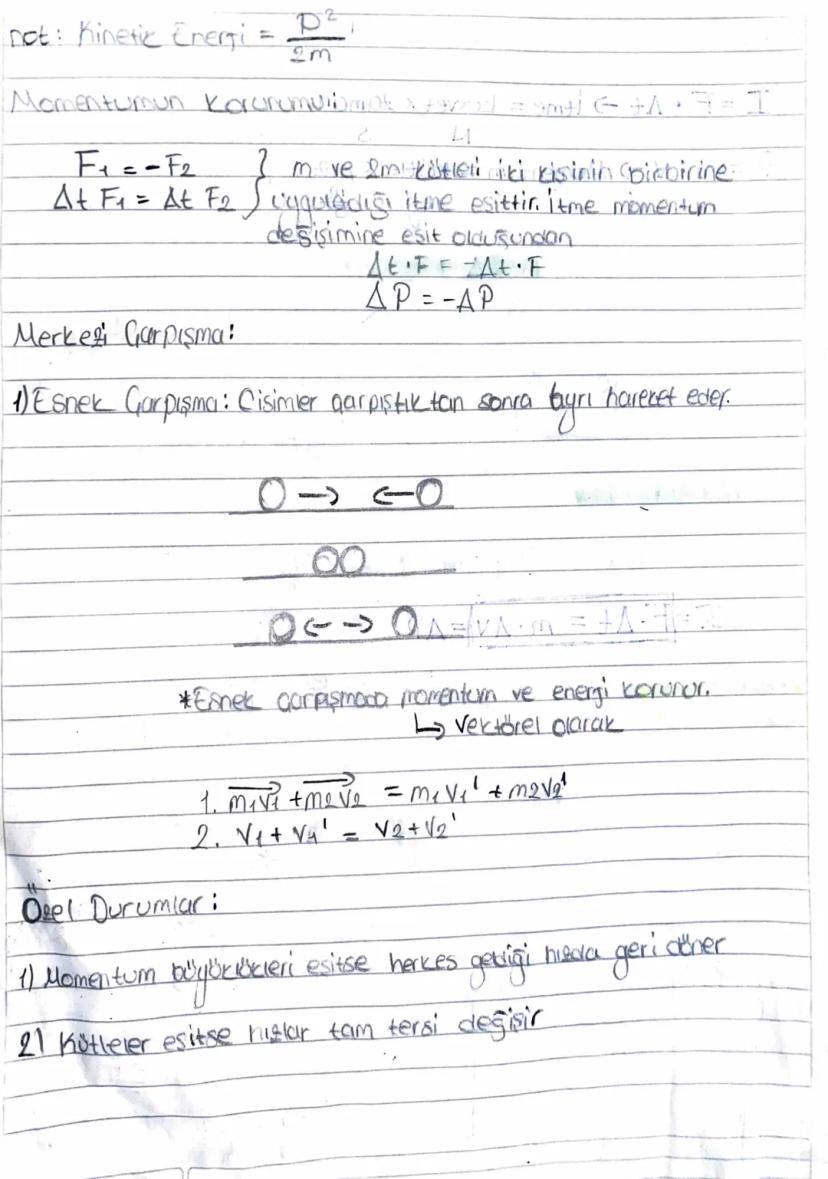 not: Kinetik Enerji = P²/2m
Momentumun Korunumu:
F₁ = -F₂ } m ve 2m kütleli iki kişinin birbirine
Δt F₁ = Δt F₂ uyguladığı itme eşittir. İtme momentum
değişimine eşit olduğundan
Δt·F = -Δt·F
ΔP = -ΔP
Merkezi Çarpışma:
1) Esnek Çarpışma: Cisimler çarpıştıktan sonra ayrı hareket eder.
*Esnek çarpışmada momentum ve energi korunur.
↳ Vektörel olarak
1. m₁v₁ + m₂v₂ = m₁v₁' + m2v2'
2. V₁ + V₁' = V2 + V2'
Özel Durumlar:
1) Momentum büyüklükleri eşitse herkes geldiği hızda geri döner
2) Kütleler eşitse hızlar tam tersi değişir